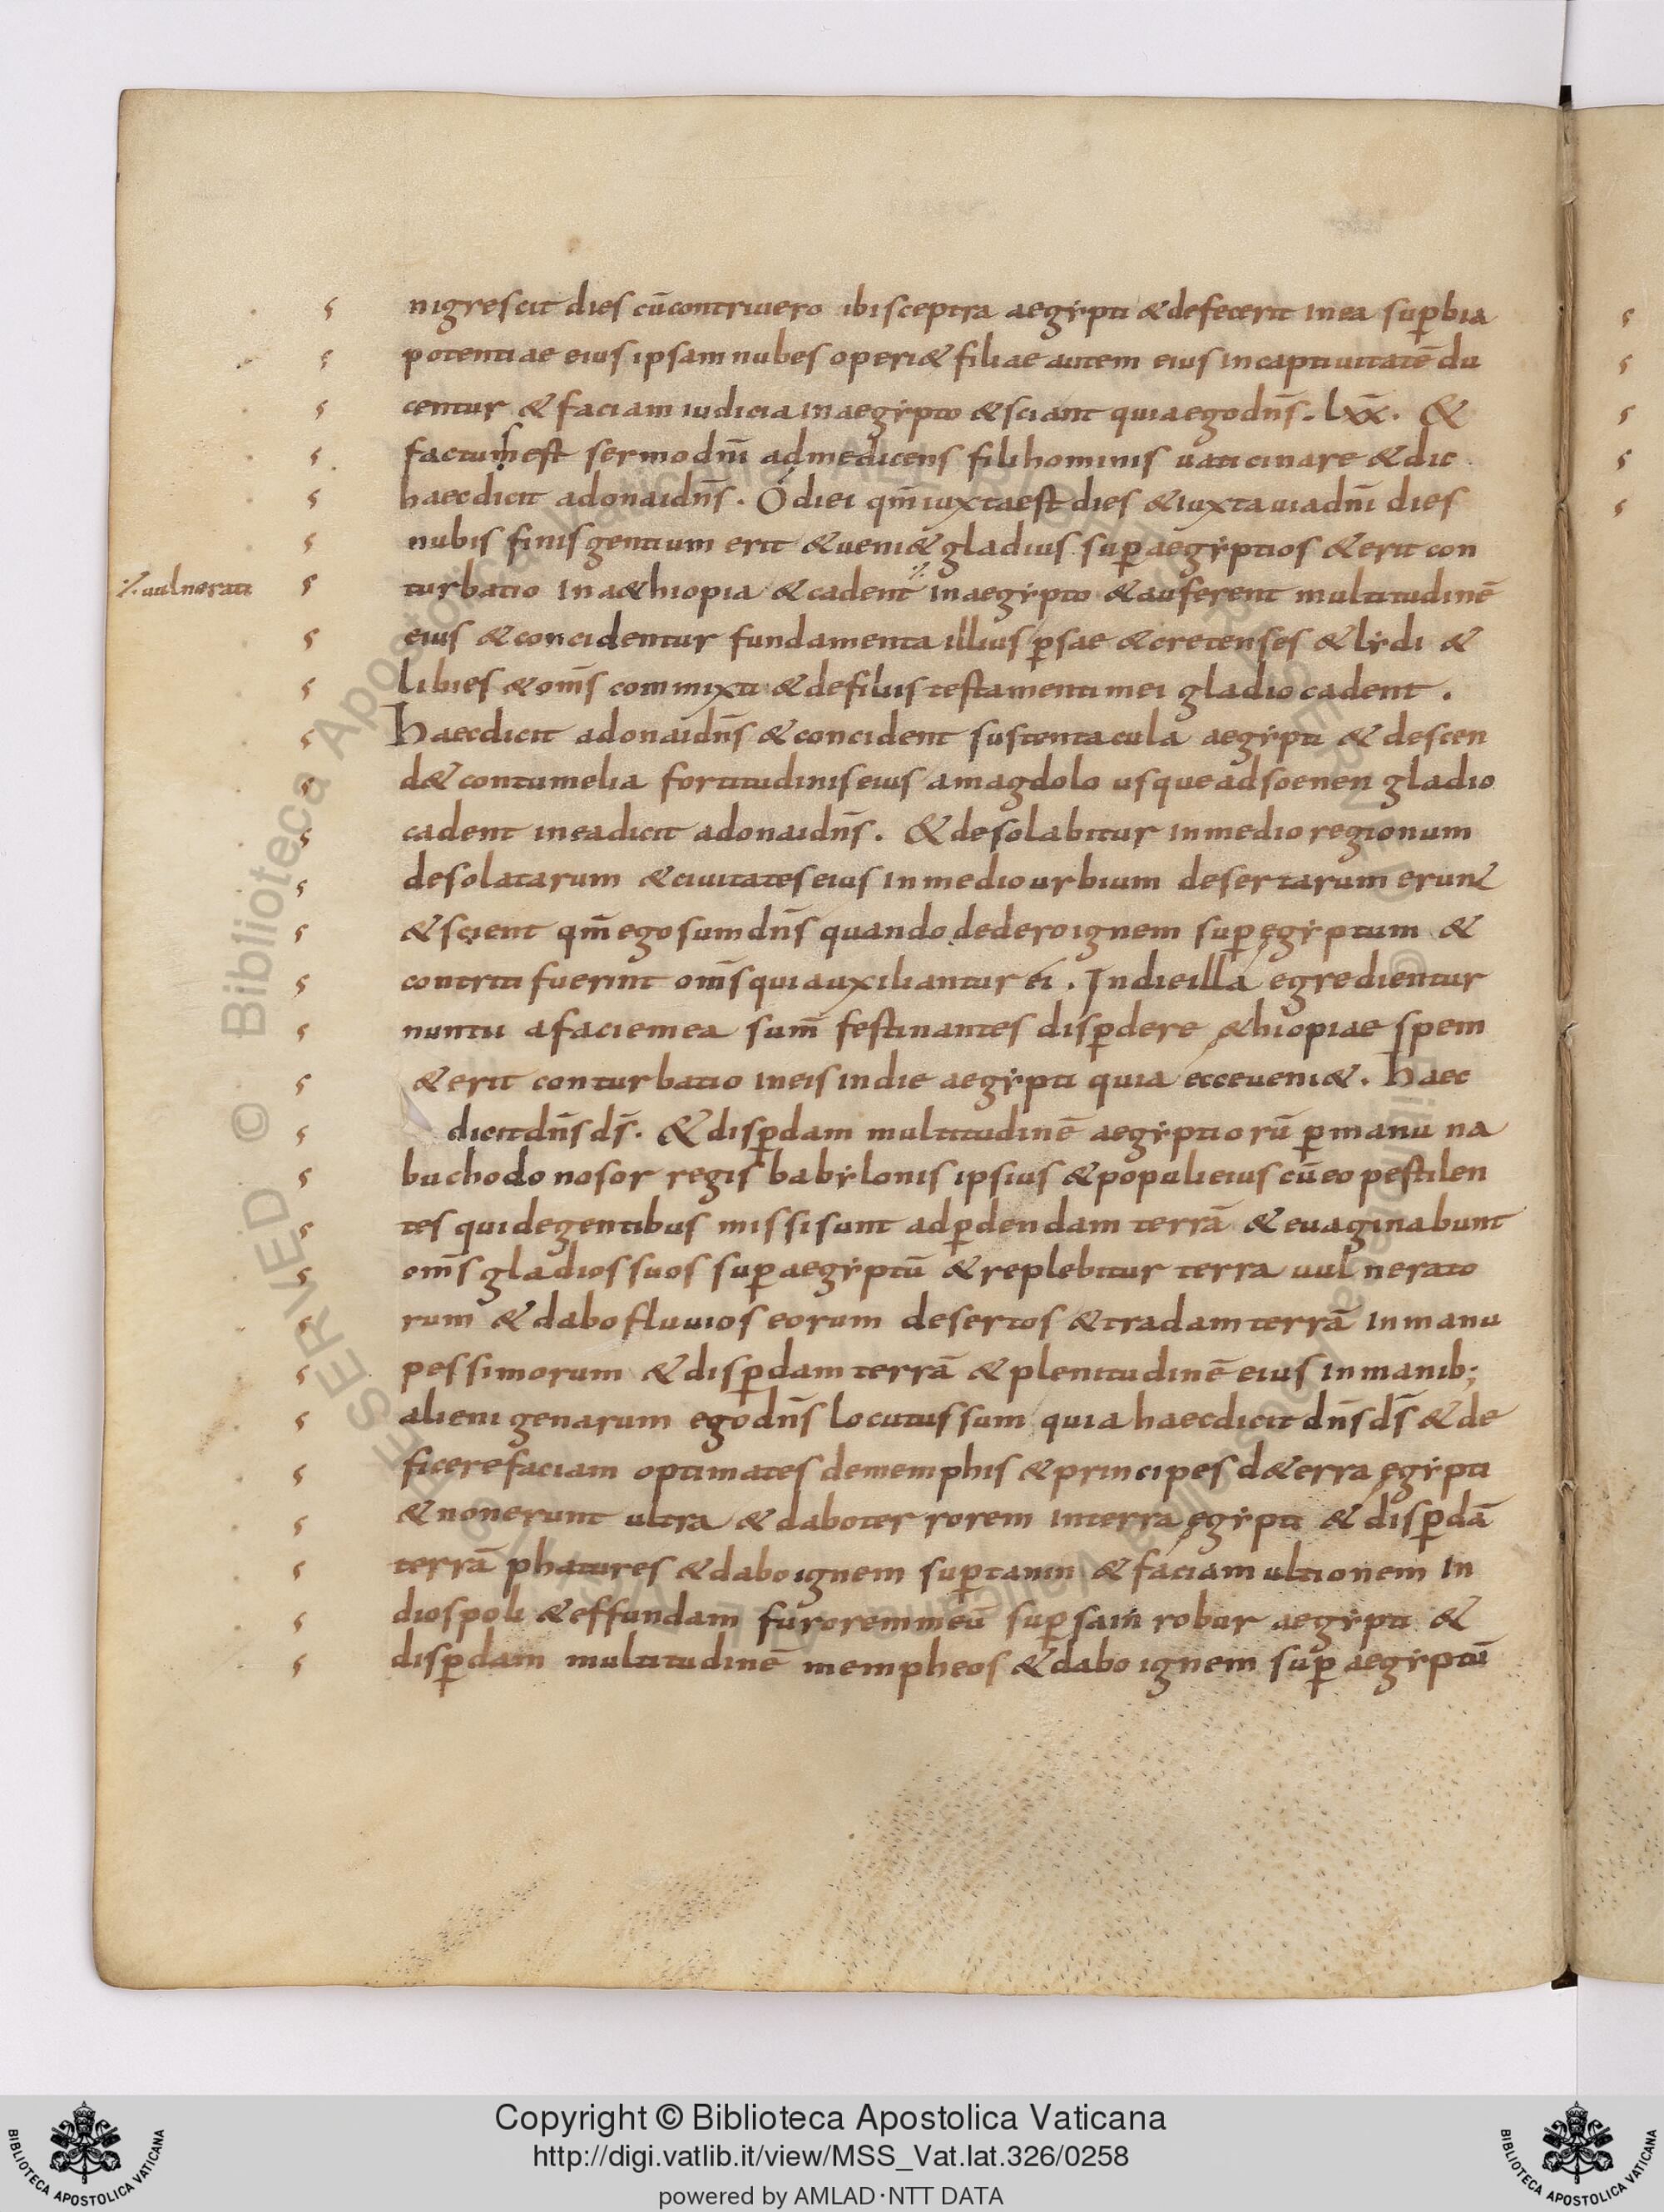 nigrescit dies cū contriuero ibi sceptra aegypti & defecerit in ea sup̄bia
potentiae eius ipsam nubes operi& filiae autem eius in captiuitatē du
centur & faciam iudicia in aegypto & sciant quia ego dn̄s. lxx. &
factus est sermo dn̄i ad me dicens fili hominis uaticinare & dic
haec dicit adonai dn̄s. Ó diei qm̄ iuxta est dies & iuxta uia dn̄i dies
nubis finis gentium erit & ueni& gladius sup̄ aegyptios & erit con
⁒ uulnerati
turbatio in a&hiopia & cadent ⁒ in aegypto & auferent multitudinē
eius & concidentur fundamenta illius p̄sae & cretenses & lydi &
libies & om̄s commixti & de filiis testamenti mei gladio cadent.
Haec dicit adonai dn̄s & concident sustentacula aegypti & descen
d& contumelia fortitudinis eius a magdolo usque ad soenen gladio
cadent in ea dicit adonai dn̄s. & desolabitur in medio regionum
desolatarum & ciuitates eius in medio urbium desertarum erunt
& scient qm̄ ego sum dn̄s quando dedero ignem sup̄ ęgyptum &
contriti fuerint om̄s qui auxiliantur ei. In die illa egredientur
nuntii a facie mea sum̄ festinantes disp̄dere &hiopiae spem
& erit conturbatio in eis in die aegypti quia ecce ueni&. Haec
dicit dn̄s ds̄. & disp̄dam multitudinē aegyptiorū p̄ manu na
buchodonosor regis babylonis ipsius & populi eius cū eo pestilen
tes qui de gentibus missi sunt ad p̄dendam terrā & euaginabunt
om̄s gladios suos sup̄ aegyptū & replebitur terra uulnerato
rum & dabo fluuios eorum desertos & tradam terrā in manu
pessimorum & disp̄dam terrā & plenitudinē eius in manib;
alienigenarum ego dn̄s locutus sum quia haec dicit dn̄s ds̄ & de
ficere faciam optimates de memphis & principes d&erra ęgypti
& non erunt ultra & dabo terrorem in terra ęgypti & disp̄dā
terrā phatures & dabo ignem sup̄ tanin & faciam ultionem in
diospoli & effundam furorem meū sup̄ sain robur aegypti &
disp̄dam multitudinē mempheos & dabo ignem sup̄ aegyptū
Copyright © Biblioteca Apostolica Vaticana
http://digi.vatlib.it/view/MSS_Vat.lat.326/0258
powered by AMLAD·NTT DATA
BIBLIOTECA APOSTOLICA VATICANA
BIBLIOTECA APOSTOLICA VATICANA